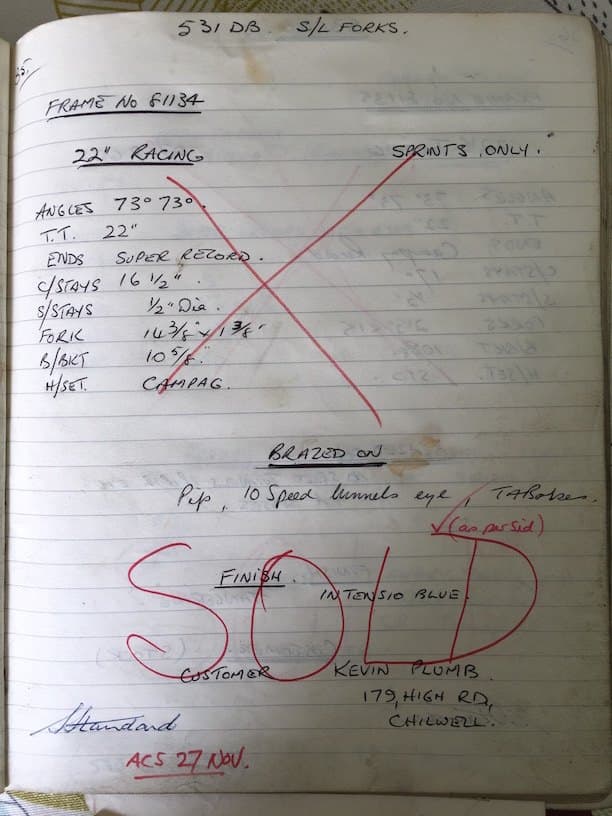 531 DB. S/L FORKS.
35.
FRAME NO 81134
22" RACING SPRINTS ONLY.
ANGLES 73° 73°.
T.T. 22"
ENDS SUPER RECORD.
C/STAYS 16 1/2".
S/STAYS 1/2" Dia.
FORK 14 3/8" x 1 3/8"
B/BKT 10 5/8."
H/SET. CAMPAG.
BRAZED ON
Pip, 10 Speed tunnels eye,
(as per Sid)
SOLD
FINISH.
INTENSIO BLUE.
CUSTOMER KEVIN PLUMB.
179, HIGH RD,
CHILWELL.
Standard
ACS 27 NOV.